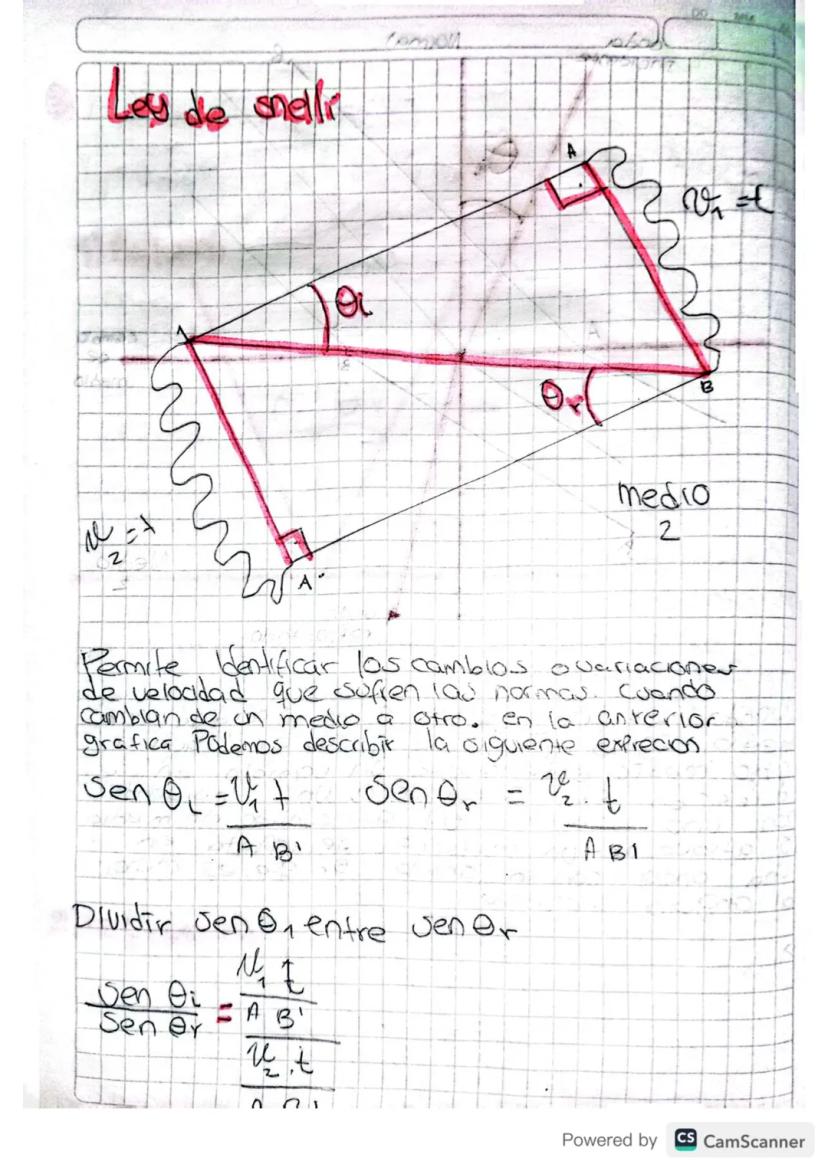 Ley de snellr
A
v₁ = t
θi
A
θr
B
medio
2
v₂ = t
A'
Permite Identificar los cambios o variaciones
de velocidad que sufren las normas. cuando
cambian de un medio a otro. en la anterior
grafica Podemos describir la siguiente exprecion
Sen θi = v₁ t / A B'    Sen θr = v₂ . t / A B1
Dividir sen θ1 entre sen θr
sen θi / sen θr = v₁ t / A B' / v₂ . t
Powered by CS CamScanner